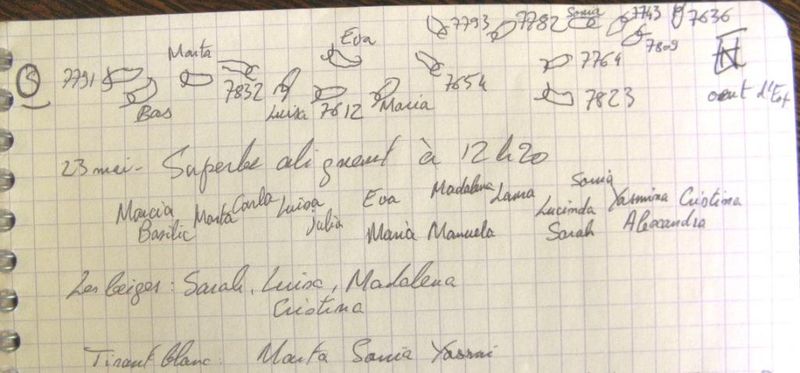 7793 7782 Sonia 7743 7636
Eva 7809
Marta 7764 N
S 7791 7832 7654
Bas Luisa 7612 Maria 7823 d'Eof
23 mai - Superbe alignent à 12h20
Marcia Marta Carla Luisa Eva Madalena Laura Sonia Yasmina Cristina
Basilic Julia Maria Manuela Lucinda Alexandra
Sarah
Les beiges : Sarah, Luisa, Madalena
Cristina
Tirant blanc : Marta Sonia Yasmi